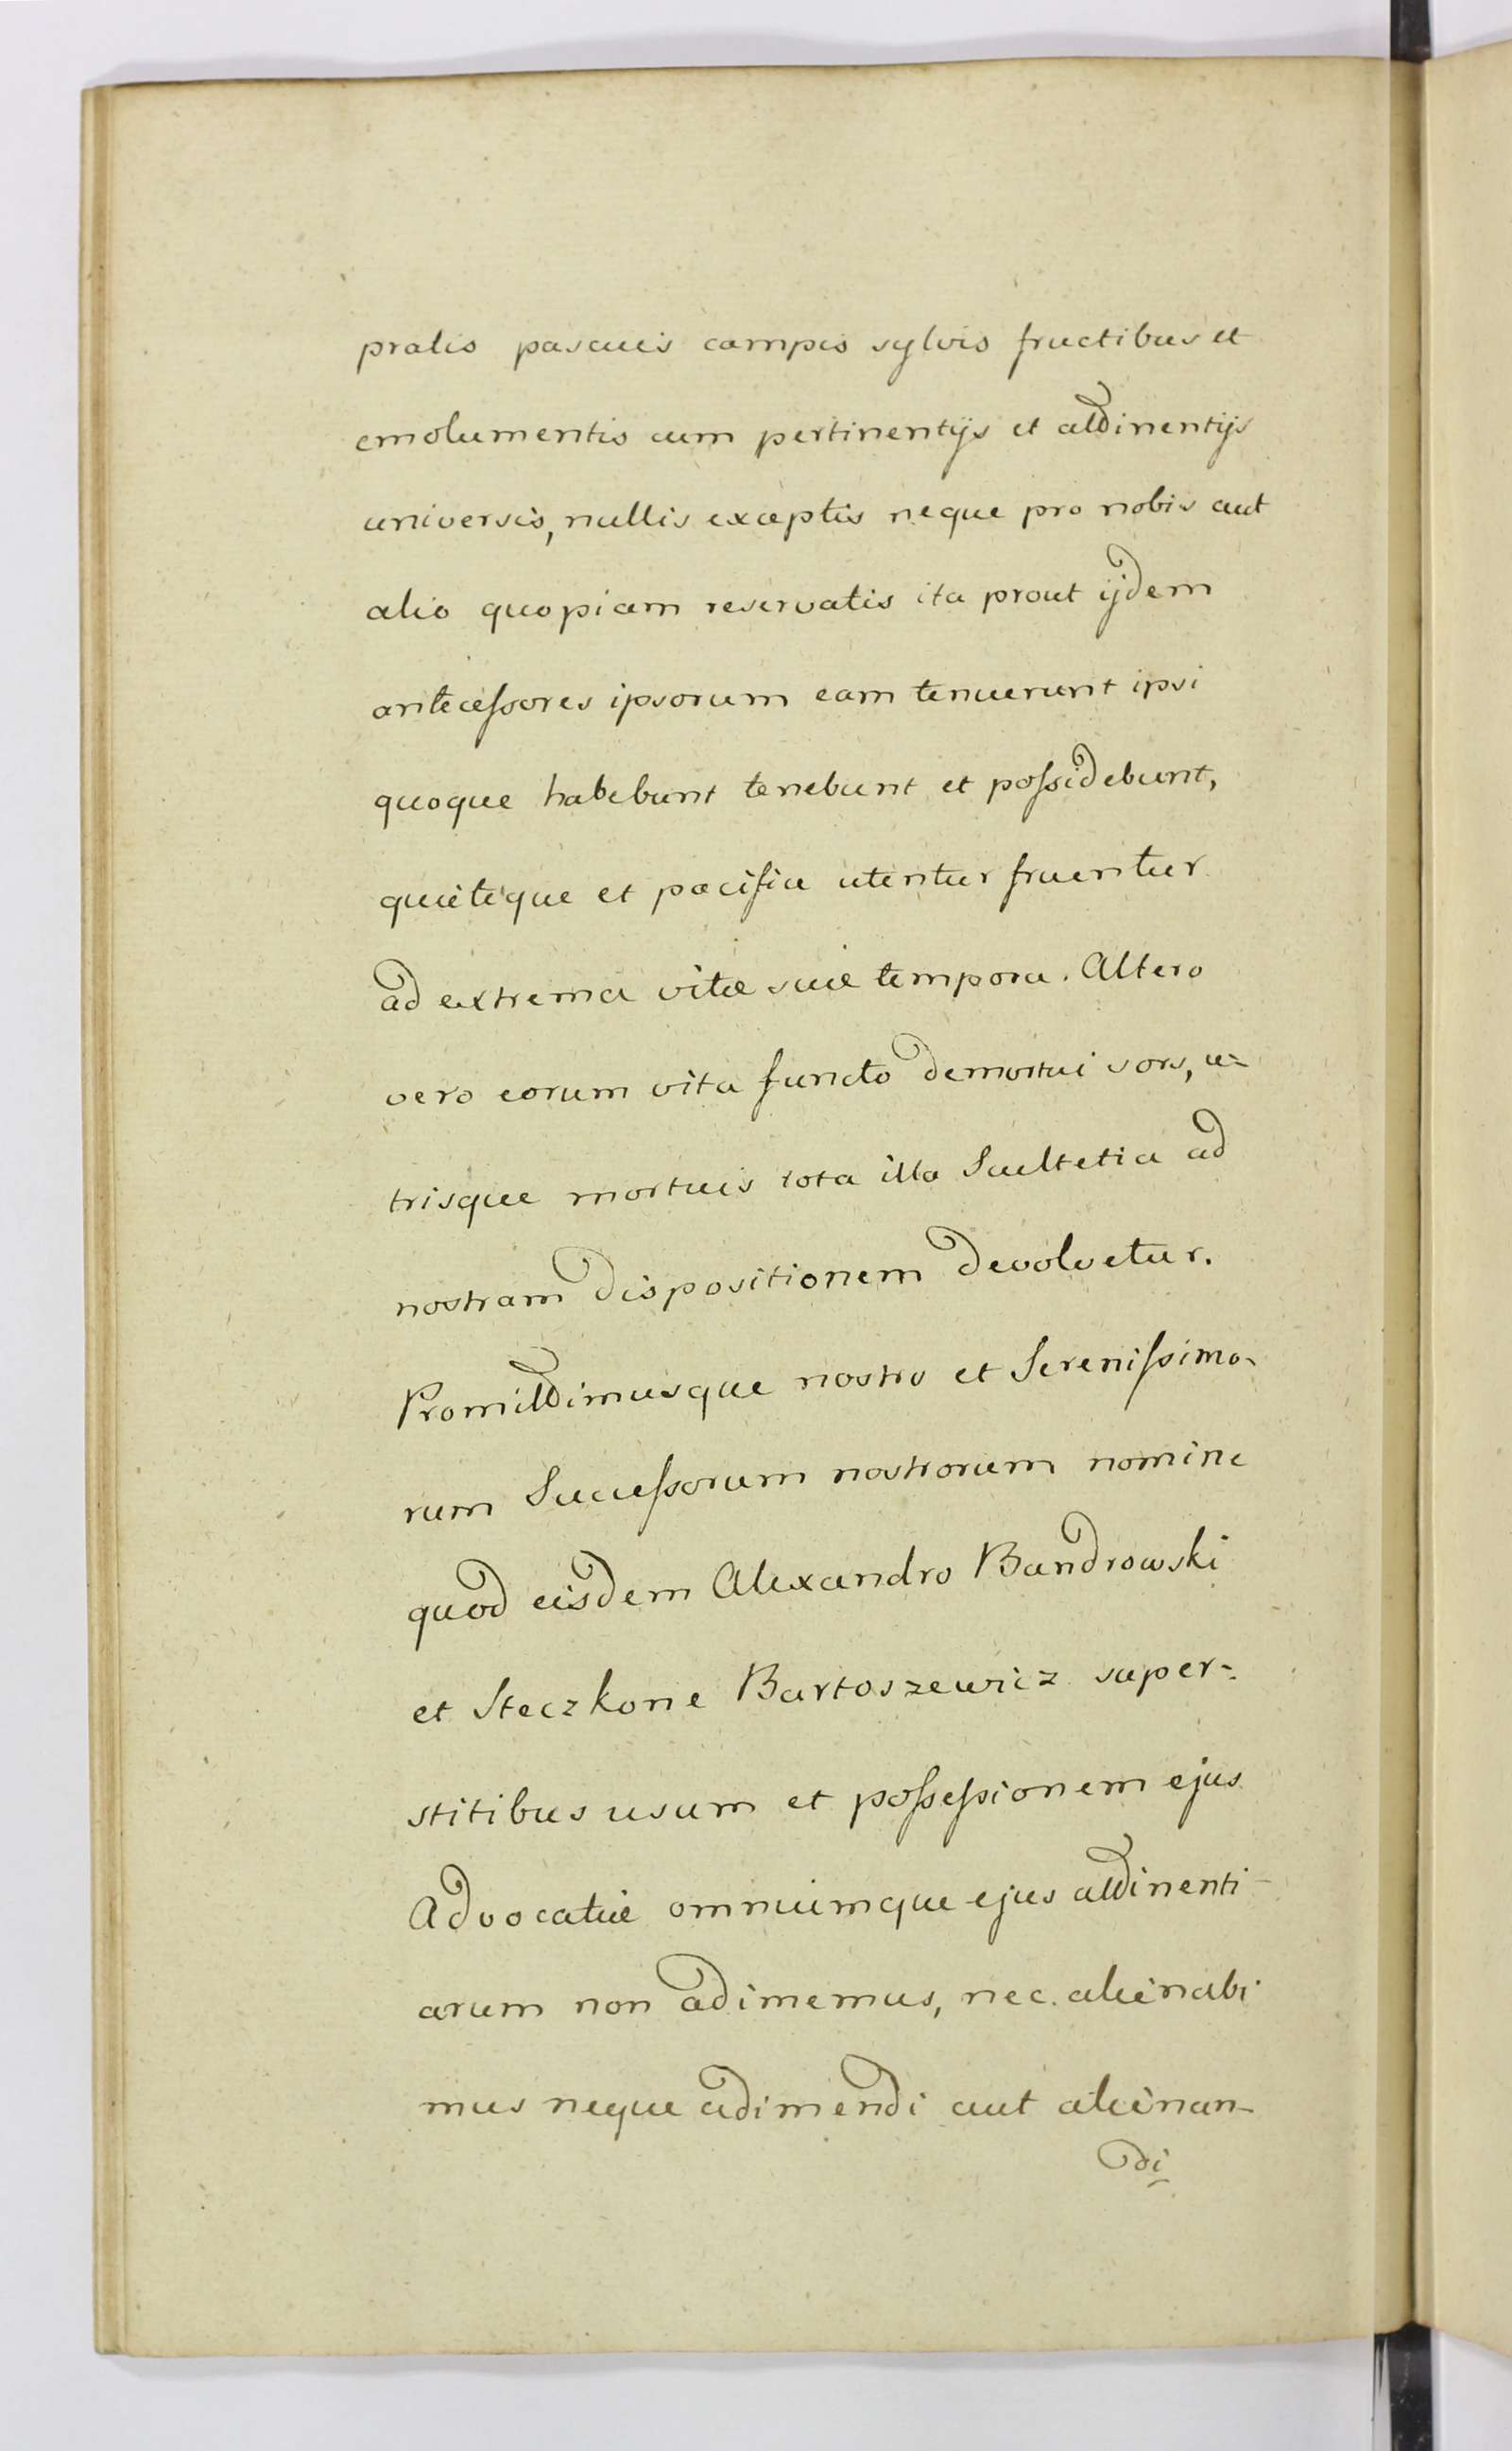 pratis pascuis campis sylvis fructibus et
emolumentis cum pertinentijs et attinentijs
universis, nullis exceptis neque pro nobis aut
alio quopiam reservatis ita prout ijdem
anteceſsores ipsorum eam tenuerunt ipsi
quoque habebunt tenebunt et poſsidebunt,
quieteque et pacifice utentur fruentur
ad extrema vitæ suæ tempora. Altero
vero eorum vita functo demortui sors, u=
trisque mortuis tota illa Scultetia ad
nostram dispositionem devolvetur.
Promittimusque nostro et Sereniſsimo-
rum Succeſsorum nostrorum nomine
quod eisdem Alexandro Bandrowski
et Steczkone Bartoszewicz super=
stitibus usum et poſseſsionem ejus
Advocatiæ omniumque ejus attinenti-
arum non adimemus, nec alienabi
mus neque adimendi aut alienan-
di